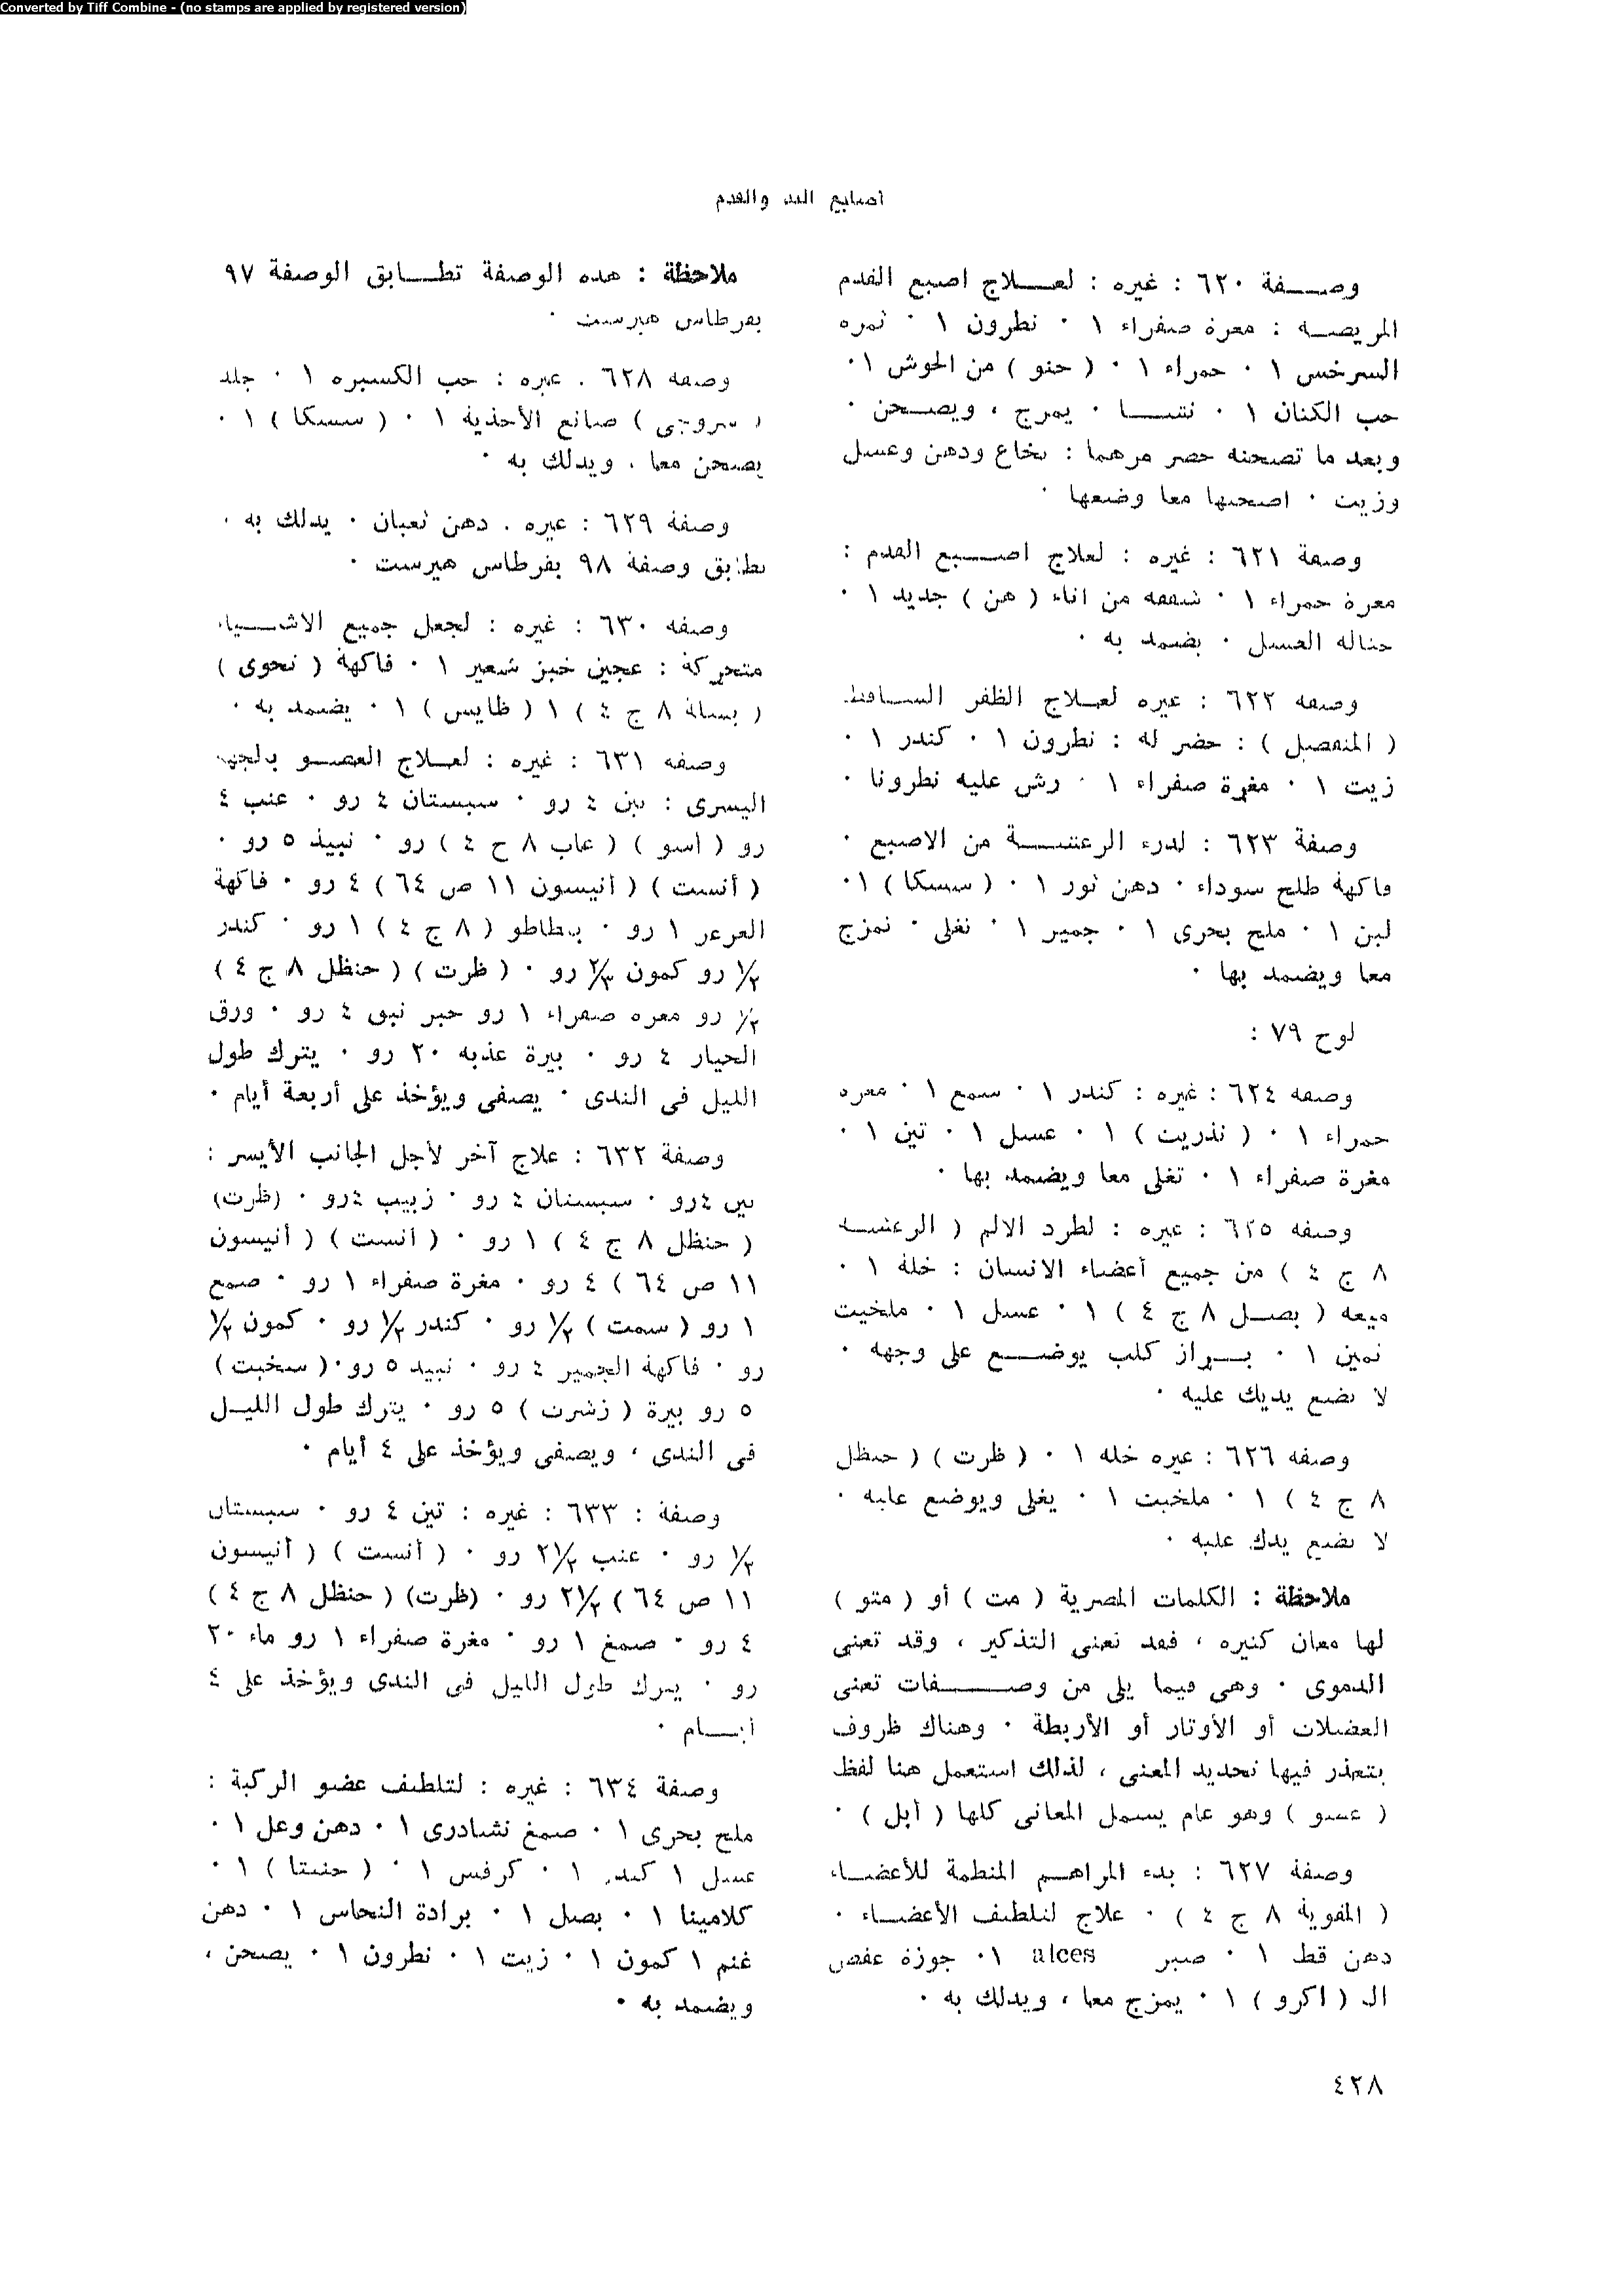 Converted by Tiff Combine - (no stamps are applied by registered version)
أصابع اليد والقدم
وصـــفة ٦٢٠ : غيره : لعـــلاج اصبع القدم
المريضـة : مغرة صفراء ١ · نطرون ١ · ثمرة
السرخس ١ · حمراء ١ · ( حنو ) من الحوش ١·
حب الكتان ١ · نتشـــا · يمزج ، ويصـحن ·
وبعد ما تصحنه حضر مرهما : نخاع ودهن وعسل
وزيت · اصحنها معا وضعها ·
وصفة ٦٢١ : غيره : لعلاج اصـــبع القدم :
مغرة حمراء ١ · شقفه من اناء ( هن ) جديد ١ ·
حثاله العسل · يضمد به ·
وصفه ٦٢٢ : غيره لعـلاج الظفر السـاقط
( المنفصل ) : حضر له : نطرون ١ · كندر ١ ·
زيت ١ · مغرة صفراء ١ · رش عليه نطرونا ·
وصفة ٦٢٣ : لدرء الرعشـــة من الاصبع ·
فاكهة طلح سوداء · دهن ثور ١ · ( سسكا ) ١·
لبن ١ · ملح بحرى ١ · جميز ١ · تغلى · تمزج
معا ويضمد بها ·
لوح ٧٩ :
وصفه ٦٢٤ : غيره : كندر ١ · شمع ١ · مغره
حمراء ١ · ( نذريت ) ١ · عسل ١ · تين ١ ·
مغرة صفراء ١ · تغلى معا ويضمد بها ·
وصفه ٦٢٥ : غيره : لطرد الالم ( الرعشـه
٨ ج ٤ ) من جميع أعضاء الانسان : خلة ١ ·
ميعه ( بصـل ٨ ج ٤ ) ١ · عسل ١ · ملخيت
ثمين ١ · بـراز كلب يوضـع على وجهه ·
لا تضع يديك عليه ·
وصفه ٦٢٦ : غيره خله ١ · ( ظرت ) ( حنظل
٨ ج ٤ ) ١ · ملخيت ١ · يغلى ويوضع عليه ·
لا تضع يدك عليه ·
ملاحظة : الكلمات المصرية ( مت ) أو ( متو )
لها معان كثيره ، فقد تعنى التذكير ، وقد تعنى
الدموى · وهى فيما يلى من وصـــفات تعنى
العضلات أو الأوتار أو الأربطة · وهناك ظروف
يتعذر فيها تحديد المعنى ، لذلك استعمل هنا لفظ
( عضو ) وهو عام يشمل المعانى كلها ( أبل ) ·
وصفة ٦٢٧ : بدء المراهـم المنظمة للأعضـاء
( المقوية ٨ ج ٤ ) · علاج لتلطيف الأعضـاء ·
دهن قط ١ · صبر alces ١· جوزة عفص
الـ ( اكرو ) ١ · يمزج معا ، ويدلك به ·
ملاحظة : هذه الوصفة تطــابق الوصفة ٩٧
بقرطاس هيرست ·
وصفه ٦٢٨ . غيره : حب الكسبره ١ · جلد
( سروجى ) صانع الأحذية ١ · ( سسكا ) ١ ·
يصحن معا ، ويدلك به ·
وصفة ٦٢٩ : غيره . دهن ثعبان · يدلك به ·
تطابق وصفة ٩٨ بقرطاس هيرست ·
وصفه ٦٣٠ : غيره : لجعل جميع الاشـــياء
متحركة : عجين خبز شعير ١ · فاكهة ( نحوى )
( بسلة ٨ ج ٤ ) ١ ( ظايس ) ١ · يضمد به ·
وصفه ٦٣١ : غيره : لعـلاج العضـو بالجهة
اليسرى : تين ٤ رو · سبستان ٤ رو · عنب ٤
رو ( اسو ) ( غاب ٨ ج ٤ ) رو · نبيذ ٥ رو ·
( أنست ) ( أنيسون ١١ ص ٦٤ ) ٤ رو · فاكهة
العرعر ١ رو · بطاطو ( ٨ ج ٤ ) ١ رو · كندر
½ رو كمون ⅔ رو · ( ظرت ) ( حنظل ٨ ج ٤ )
½ رو مغره صفراء ١ رو خبز نبق ٤ رو · ورق
الخيار ٤ رو · بيرة عذبه ٢٠ رو · يترك طول
الليل فى الندى · يصفى ويؤخذ على أربعة أيام ·
وصفة ٦٣٢ : علاج آخر لأجل الجانب الأيسر :
تين ٤رو · سبستان ٤ رو · زبيب ٤رو · (ظرت)
( حنظل ٨ ج ٤ ) ١ رو · ( انست ) ( أنيسون
١١ ص ٦٤ ) ٤ رو · مغرة صفراء ١ رو · صمغ
١ رو ( سمت ) ½ رو · كندر ½ رو · كمون ½
رو · فاكهة الجميز ٤ رو · نبيد ٥ رو ·( سخبت )
٥ رو بيرة ( زشرت ) ٥ رو · يترك طول الليـل
فى الندى ، ويصفى ويؤخذ على ٤ أيام ·
وصفة : ٦٣٣ : غيره : تين ٤ رو · سبستان
½ رو · عنب ٢½ رو · ( أنست ) ( أنيسون
١١ ص ٦٤ ) ٢½ رو · (ظرت) ( حنظل ٨ ج ٤ )
٤ رو · صمغ ١ رو · مغرة صفراء ١ رو ماء ٢٠
رو · يترك طول الليل فى الندى ويؤخذ على ٤
أيـــام ·
وصفة ٦٣٤ : غيره : لتلطيف عضو الركبة :
ملح بحرى ١ · صمغ نشادرى ١ · دهن وعل ١ ·
عسل ١ كندر ١ · كرفس ١ · ( حنستا ) ١ ·
كلامينا ١ · بصل ١ · برادة النحاس ١ · دهن
غنم ١ كمون ١ · زيت ١ · نطرون ١ · يصحن ،
ويضمد به ·
٤٢٨